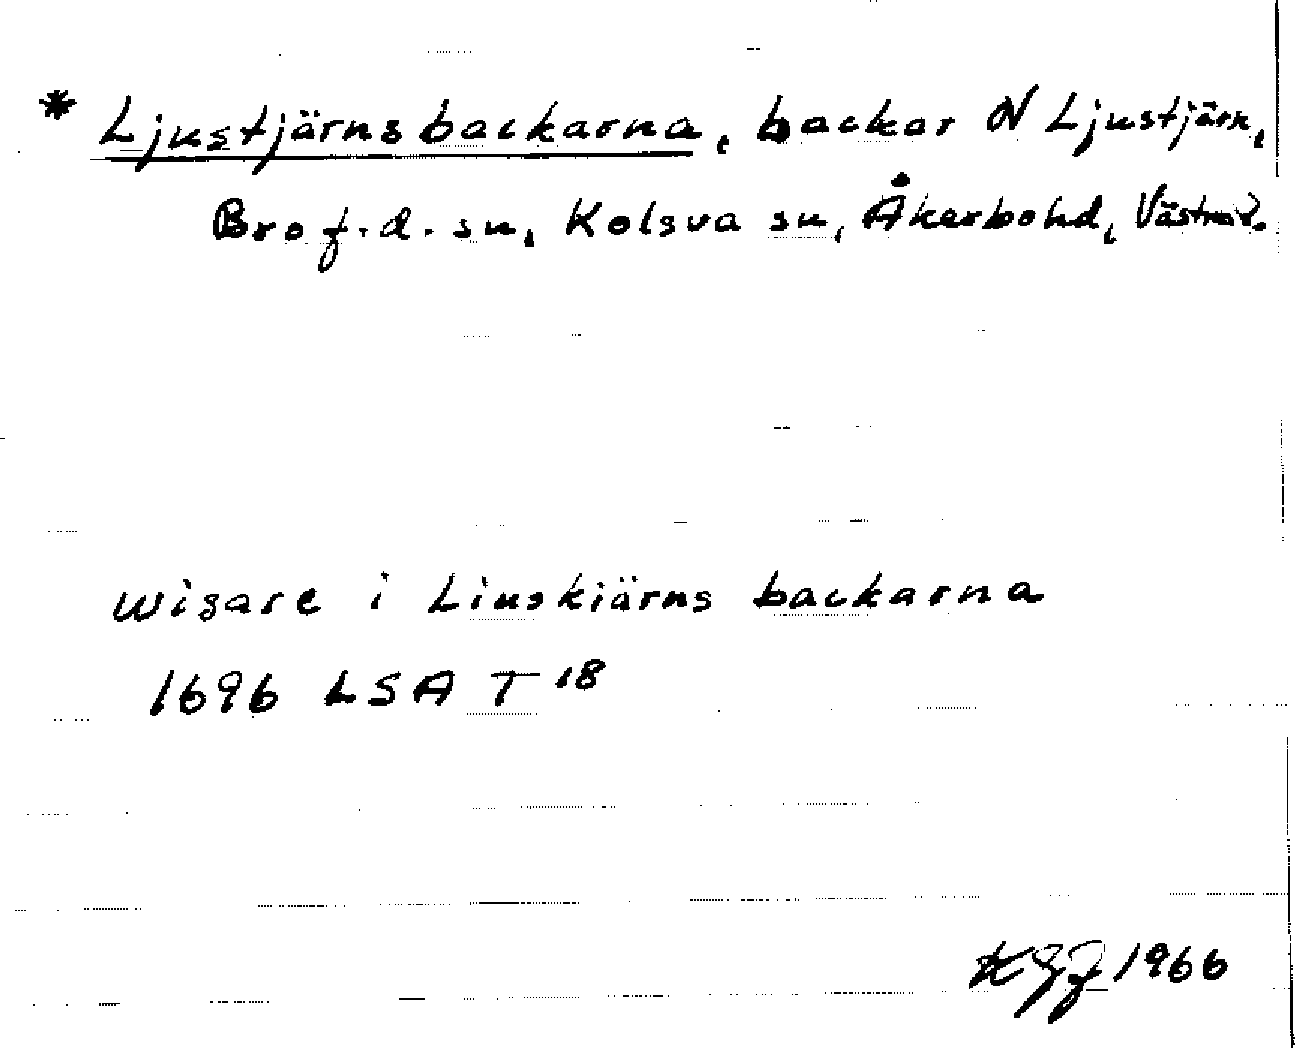 * Ljustjärnsbackarna, backar N Ljustjärn,
Bro f.d. sn, Kolsva sn, Åkerbohd, Västml.
wisare i Liuskiärns backarna
1696 LSA T 18
1966